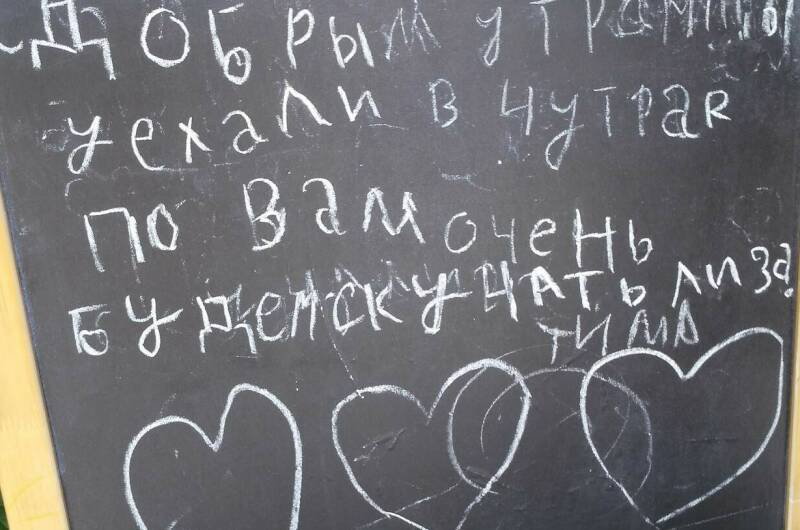 Добрым утрам мы
уехали в чутрая
по вам очень
будем скучать лиза
тима